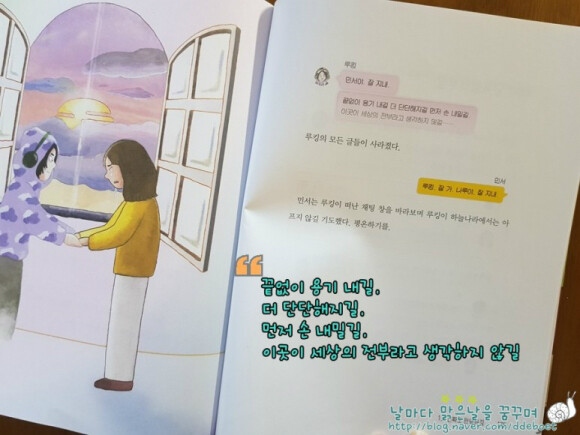 루킹
민서야. 잘 지내
끝없이 용기 내길 더 단단해지길 먼저 손 내밀길
이곳이 세상의 전부라고 생각하지 않길……
루킹의 모든 글들이 사라졌다.
민서
루킹, 잘 가. 나루야, 잘 지내
민서는 루킹이 떠난 채팅 창을 바라보며 루킹이 하늘나라에서는 아
프지 않길 기도했다. 평온하기를.
끝없이 용기 내길.
더 단단해지길.
먼저 손 내밀길.
이곳이 세상의 전부라고 생각하지 않길
날마다 맑은날을 꿈꾸며
http://blog.naver.com/ddeboet